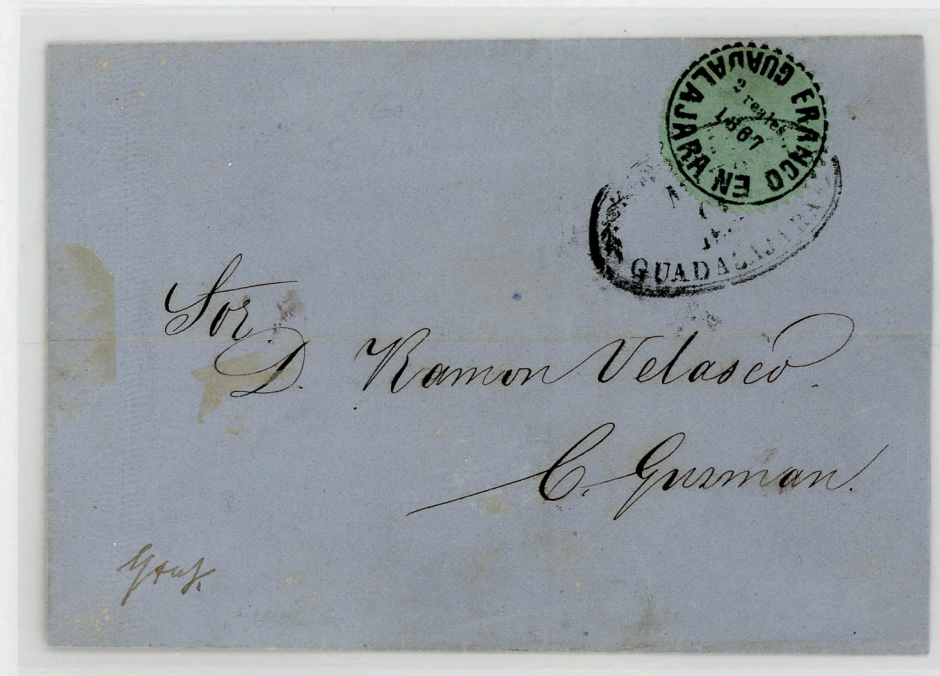 FRANCO EN GUADALAJARA
2 reales
1867
GUADALAJARA
Sor.
D. Ramon Velasco.
C. Guzman.